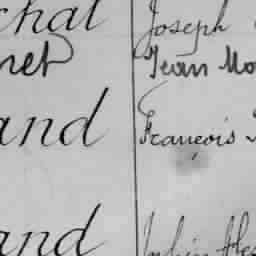 chal Joseph
net Jean Mo
and François
and